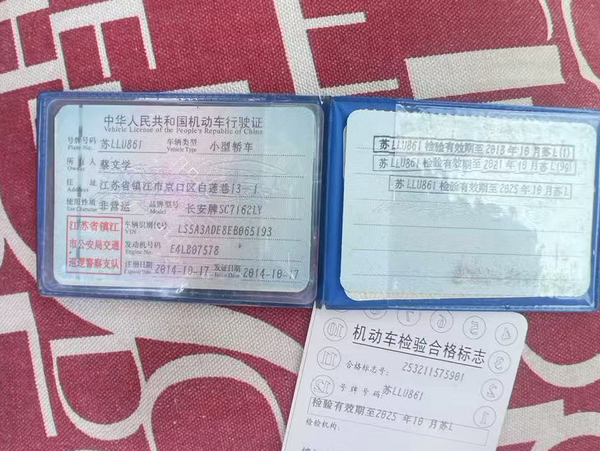 中华人民共和国机动车行驶证
Vehicle License of the People's Republic of China
号牌号码 苏LLU861 车辆类型 小型轿车
Plate No. Vehicle Type
所有人 蔡文学
Owner
住址 江苏省镇江市京口区白莲巷13-1
Address
使用性质 非营运 品牌型号 长安牌SC7162LY
Use Character Model
江苏省镇江
市公安局交通
巡逻警察支队
车辆识别代号 LS5A3ADE8EB065193
VIN
发动机号码 E4LB07578
Engine No.
注册日期 2014-10-17 发证日期 2014-10-17
Register Date Issue Date
苏LLU861 检验有效期至2018年10月苏L
苏LLU861 检验有效期至2021年10月苏L
苏LLU861 检验有效期至2025年10月苏L
机动车检验合格标志
合格标志号: 253211575901
号牌号码: 苏LLU861
检验有效期至2025年10月苏L
检验机构:
10
11
12
1
2
3
4
5